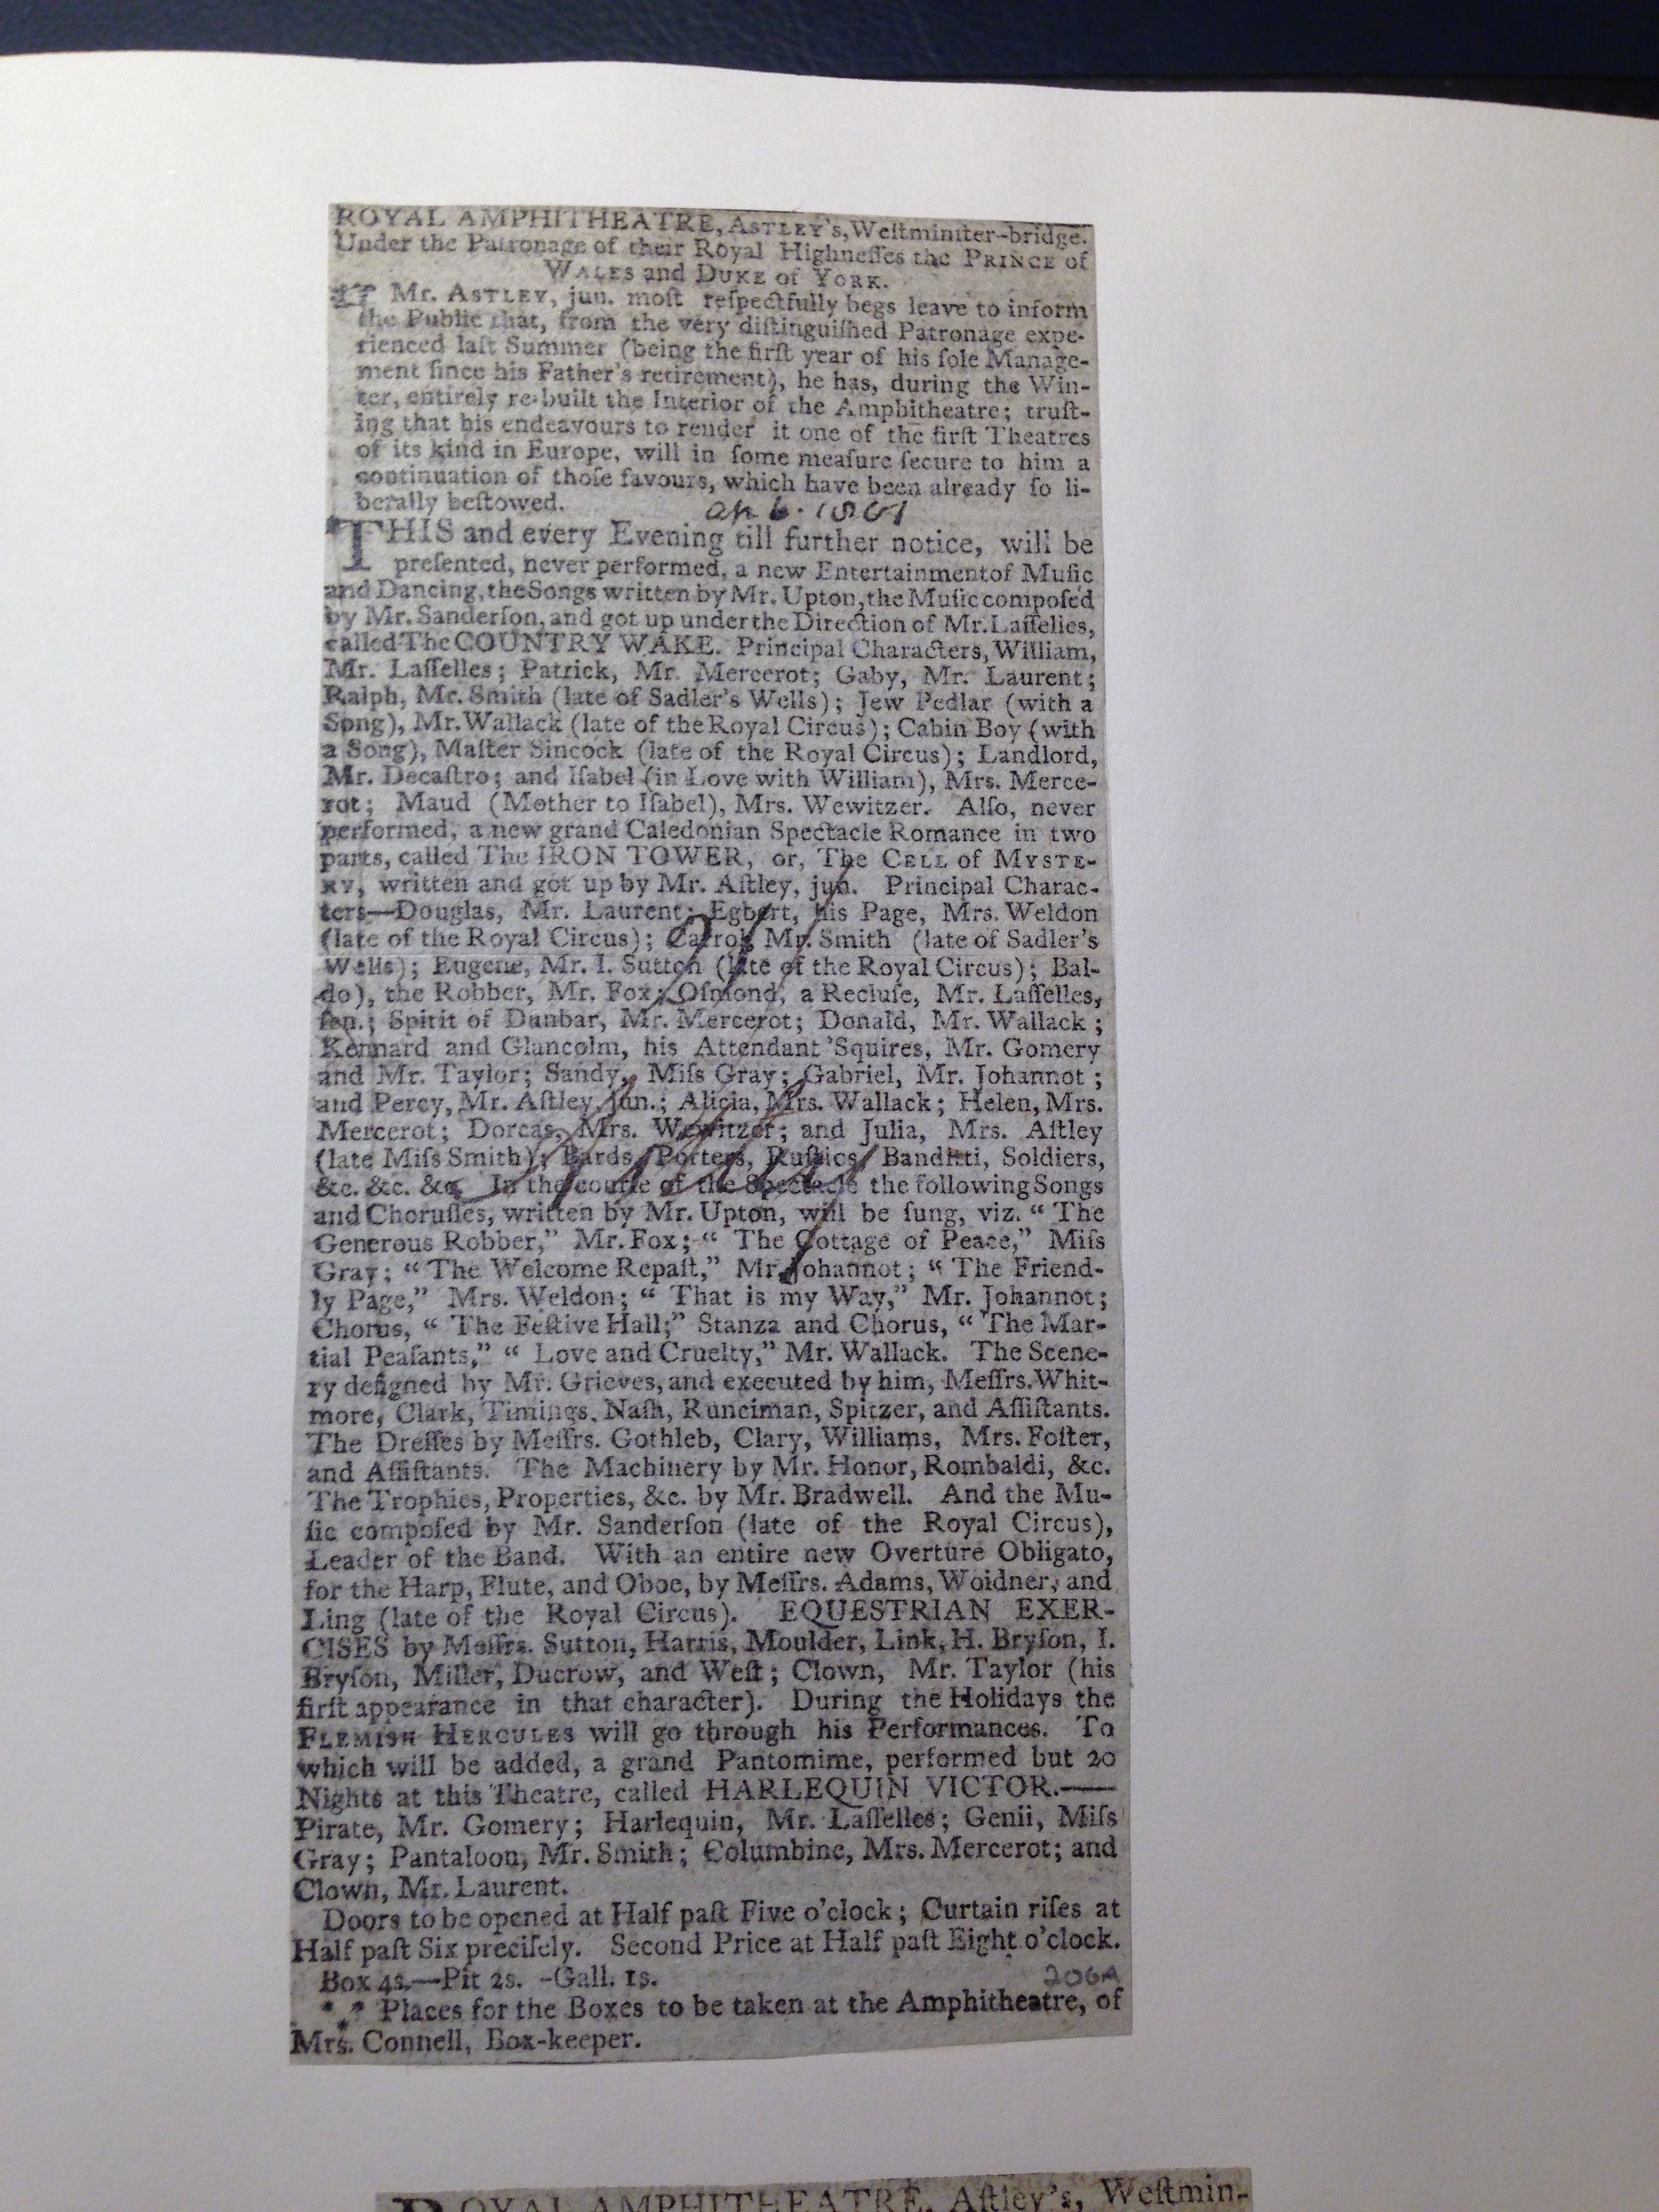 ROYAL AMPHITHEATRE, ASTLEY's, Weſtminſter-bridge.
Under the Patronage of their Royal Highneſſes the PRINCE of
WALES and DUKE of YORK.
Mr. ASTLEY, jun. moſt reſpectfully begs leave to inform
the Public that, from the very diſtinguiſhed Patronage expe-
rienced laſt Summer (being the firſt year of his ſole Manage-
ment ſince his Father's retirement), he has, during the Win-
ter, entirely re-built the Interior of the Amphitheatre; truſt-
ing that his endeavours to render it one of the firſt Theatres
of its kind in Europe, will in ſome meaſure ſecure to him a
continuation of thoſe favours, which have been already ſo li-
berally beſtowed.
THIS and every Evening till further notice, will be
preſented, never performed, a new Entertainment of Muſic
and Dancing, the Songs written by Mr. Upton, the Muſic compoſed
by Mr. Sanderſon, and got up under the Direction of Mr. Laſſelles,
called The COUNTRY WAKE. Principal Characters, William,
Mr. Laſſelles; Patrick, Mr. Mercerot; Gaby, Mr. Laurent;
Ralph, Mr. Smith (late of Sadler's Wells); Jew Pedlar (with a
Song), Mr. Wallack (late of the Royal Circus); Cabin Boy (with
a Song), Maſter Sincock (late of the Royal Circus); Landlord,
Mr. Decaſtro; and Iſabel (in Love with William), Mrs. Merce-
rot; Maud (Mother to Iſabel), Mrs. Wewitzer. Alſo, never
performed, a new grand Caledonian Spectacle Romance in two
parts, called The IRON TOWER, or, The CELL of MYSTE-
RY, written and got up by Mr. Aſtley, jun. Principal Charac-
ters—Douglas, Mr. Laurent; Egbert, his Page, Mrs. Weldon
(late of the Royal Circus); Mr. Smith (late of Sadler's
Wells); Eugene, Mr. I. Sutton (late of the Royal Circus); Bal-
do), the Robber, Mr. Fox; Oſmond, a Recluſe, Mr. Laſſelles,
ſen.; Spirit of Dunbar, Mr. Mercerot; Donald, Mr. Wallack;
Kennard and Glancolm, his Attendant 'Squires, Mr. Gomery
and Mr. Taylor; Sandy, Miſs Gray; Gabriel, Mr. Johannot;
and Percy, Mr. Aſtley, jun.; Alicia, Mrs. Wallack; Helen, Mrs.
Mercerot; Dorcas, Mrs. Wewitzer; and Julia, Mrs. Aſtley
(late Miſs Smith); Bards, Porters, Ruſtics, Banditti, Soldiers,
&c. &c. &c. In the courſe of the Spectacle the following Songs
and Choruſſes, written by Mr. Upton, will be ſung, viz. “ The
Generous Robber,” Mr. Fox; “ The Cottage of Peace,” Miſs
Gray; “ The Welcome Repaſt,” Mr. Johannot; “ The Friend-
ly Page,” Mrs. Weldon; “ That is my Way,” Mr. Johannot;
Chorus, “ The Feſtive Hall;” Stanza and Chorus, “ The Mar-
tial Peaſants,” “ Love and Cruelty,” Mr. Wallack. The Scene-
ry deſigned by Mr. Grieves, and executed by him, Meſſrs. Whit-
more, Clark, Timings, Naſh, Runciman, Spitzer, and Aſſiſtants.
The Dreſſes by Meſſrs. Gothleb, Clary, Williams, Mrs. Foſter,
and Aſſiſtants. The Machinery by Mr. Honor, Rombaldi, &c.
The Trophies, Properties, &c. by Mr. Bradwell. And the Mu-
ſic compoſed by Mr. Sanderſon (late of the Royal Circus),
Leader of the Band. With an entire new Overture Obligato,
for the Harp, Flute, and Oboe, by Meſſrs. Adams, Woidner, and
Ling (late of the Royal Circus). EQUESTRIAN EXER-
CISES by Meſſrs. Sutton, Harris, Moulder, Link, H. Bryſon, I.
Bryſon, Miller, Ducrow, and Weſt; Clown, Mr. Taylor (his
firſt appearance in that character). During the Holidays the
FLEMISH HERCULES will go through his Performances. To
which will be added, a grand Pantomime, performed but 20
Nights at this Theatre, called HARLEQUIN VICTOR.——
Pirate, Mr. Gomery; Harlequin, Mr. Laſſelles; Genii, Miſs
Gray; Pantaloon, Mr. Smith; Columbine, Mrs. Mercerot; and
Clown, Mr. Laurent.
Doors to be opened at Half paſt Five o'clock; Curtain riſes at
Half paſt Six preciſely. Second Price at Half paſt Eight o'clock.
Box 4s.—Pit 2s. -Gall. 1s.
206A
*** Places for the Boxes to be taken at the Amphitheatre, of
Mrs. Connell, Box-keeper.
ROYAL AMPHITHEATRE, Aſtley's, Weſtmin-